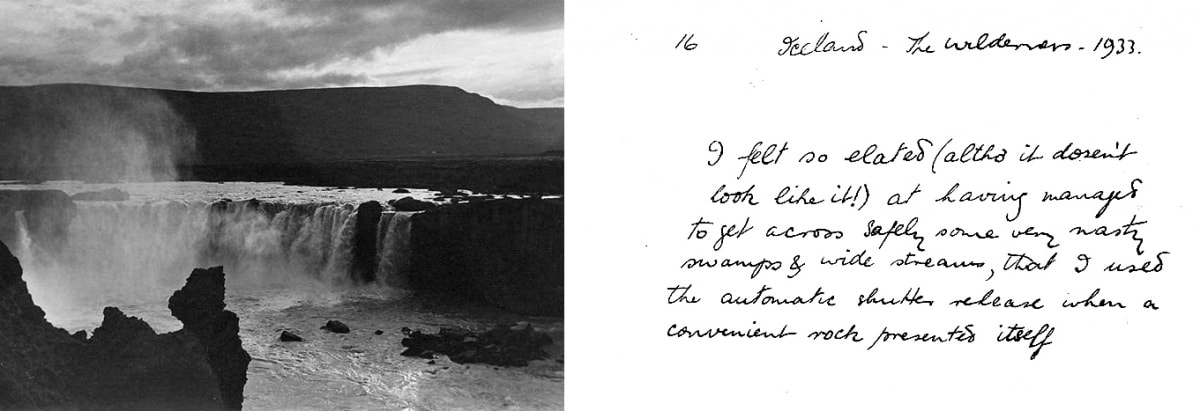 16 Iceland - The wilderness - 1933.
I felt so elated (altho it doesen't
look like it!) at having managed
to get across safely some very nasty
swamps & wide streams, that I used
the automatic shutter release when a
convenient rock presented itself